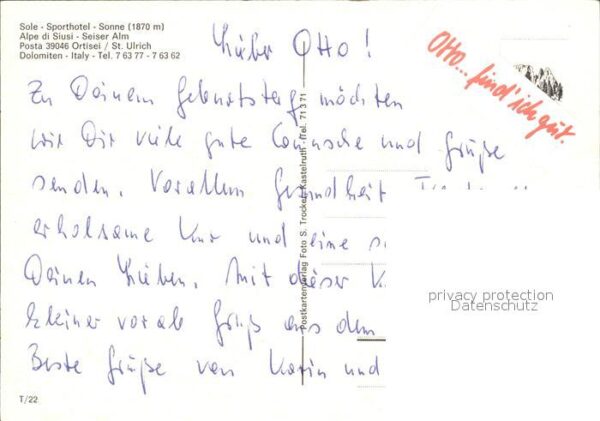 Sole - Sporthotel - Sonne (1870 m)
Alpe di Siusi - Seiser Alm
Posta 39046 Ortisei / St. Ulrich
Dolomiten - Italy - Tel. 7 63 77 - 7 63 62
Lieber Otto!
Otto... find' ich gut.
Zu Deinem Geburtstag möchten
wir Dir viele gute Wünsche und Grüße
senden. Vorallem Gesundheit
erholsame Kur und eine
Deinen Lieben. Mit dieser
kleiner vorab Gruß aus dem
Beste Grüße von Karin und
Postkartenverlag Foto S. Trocker, Kastelruth - Tel. 71371
privacy protection
Datenschutz
T/22